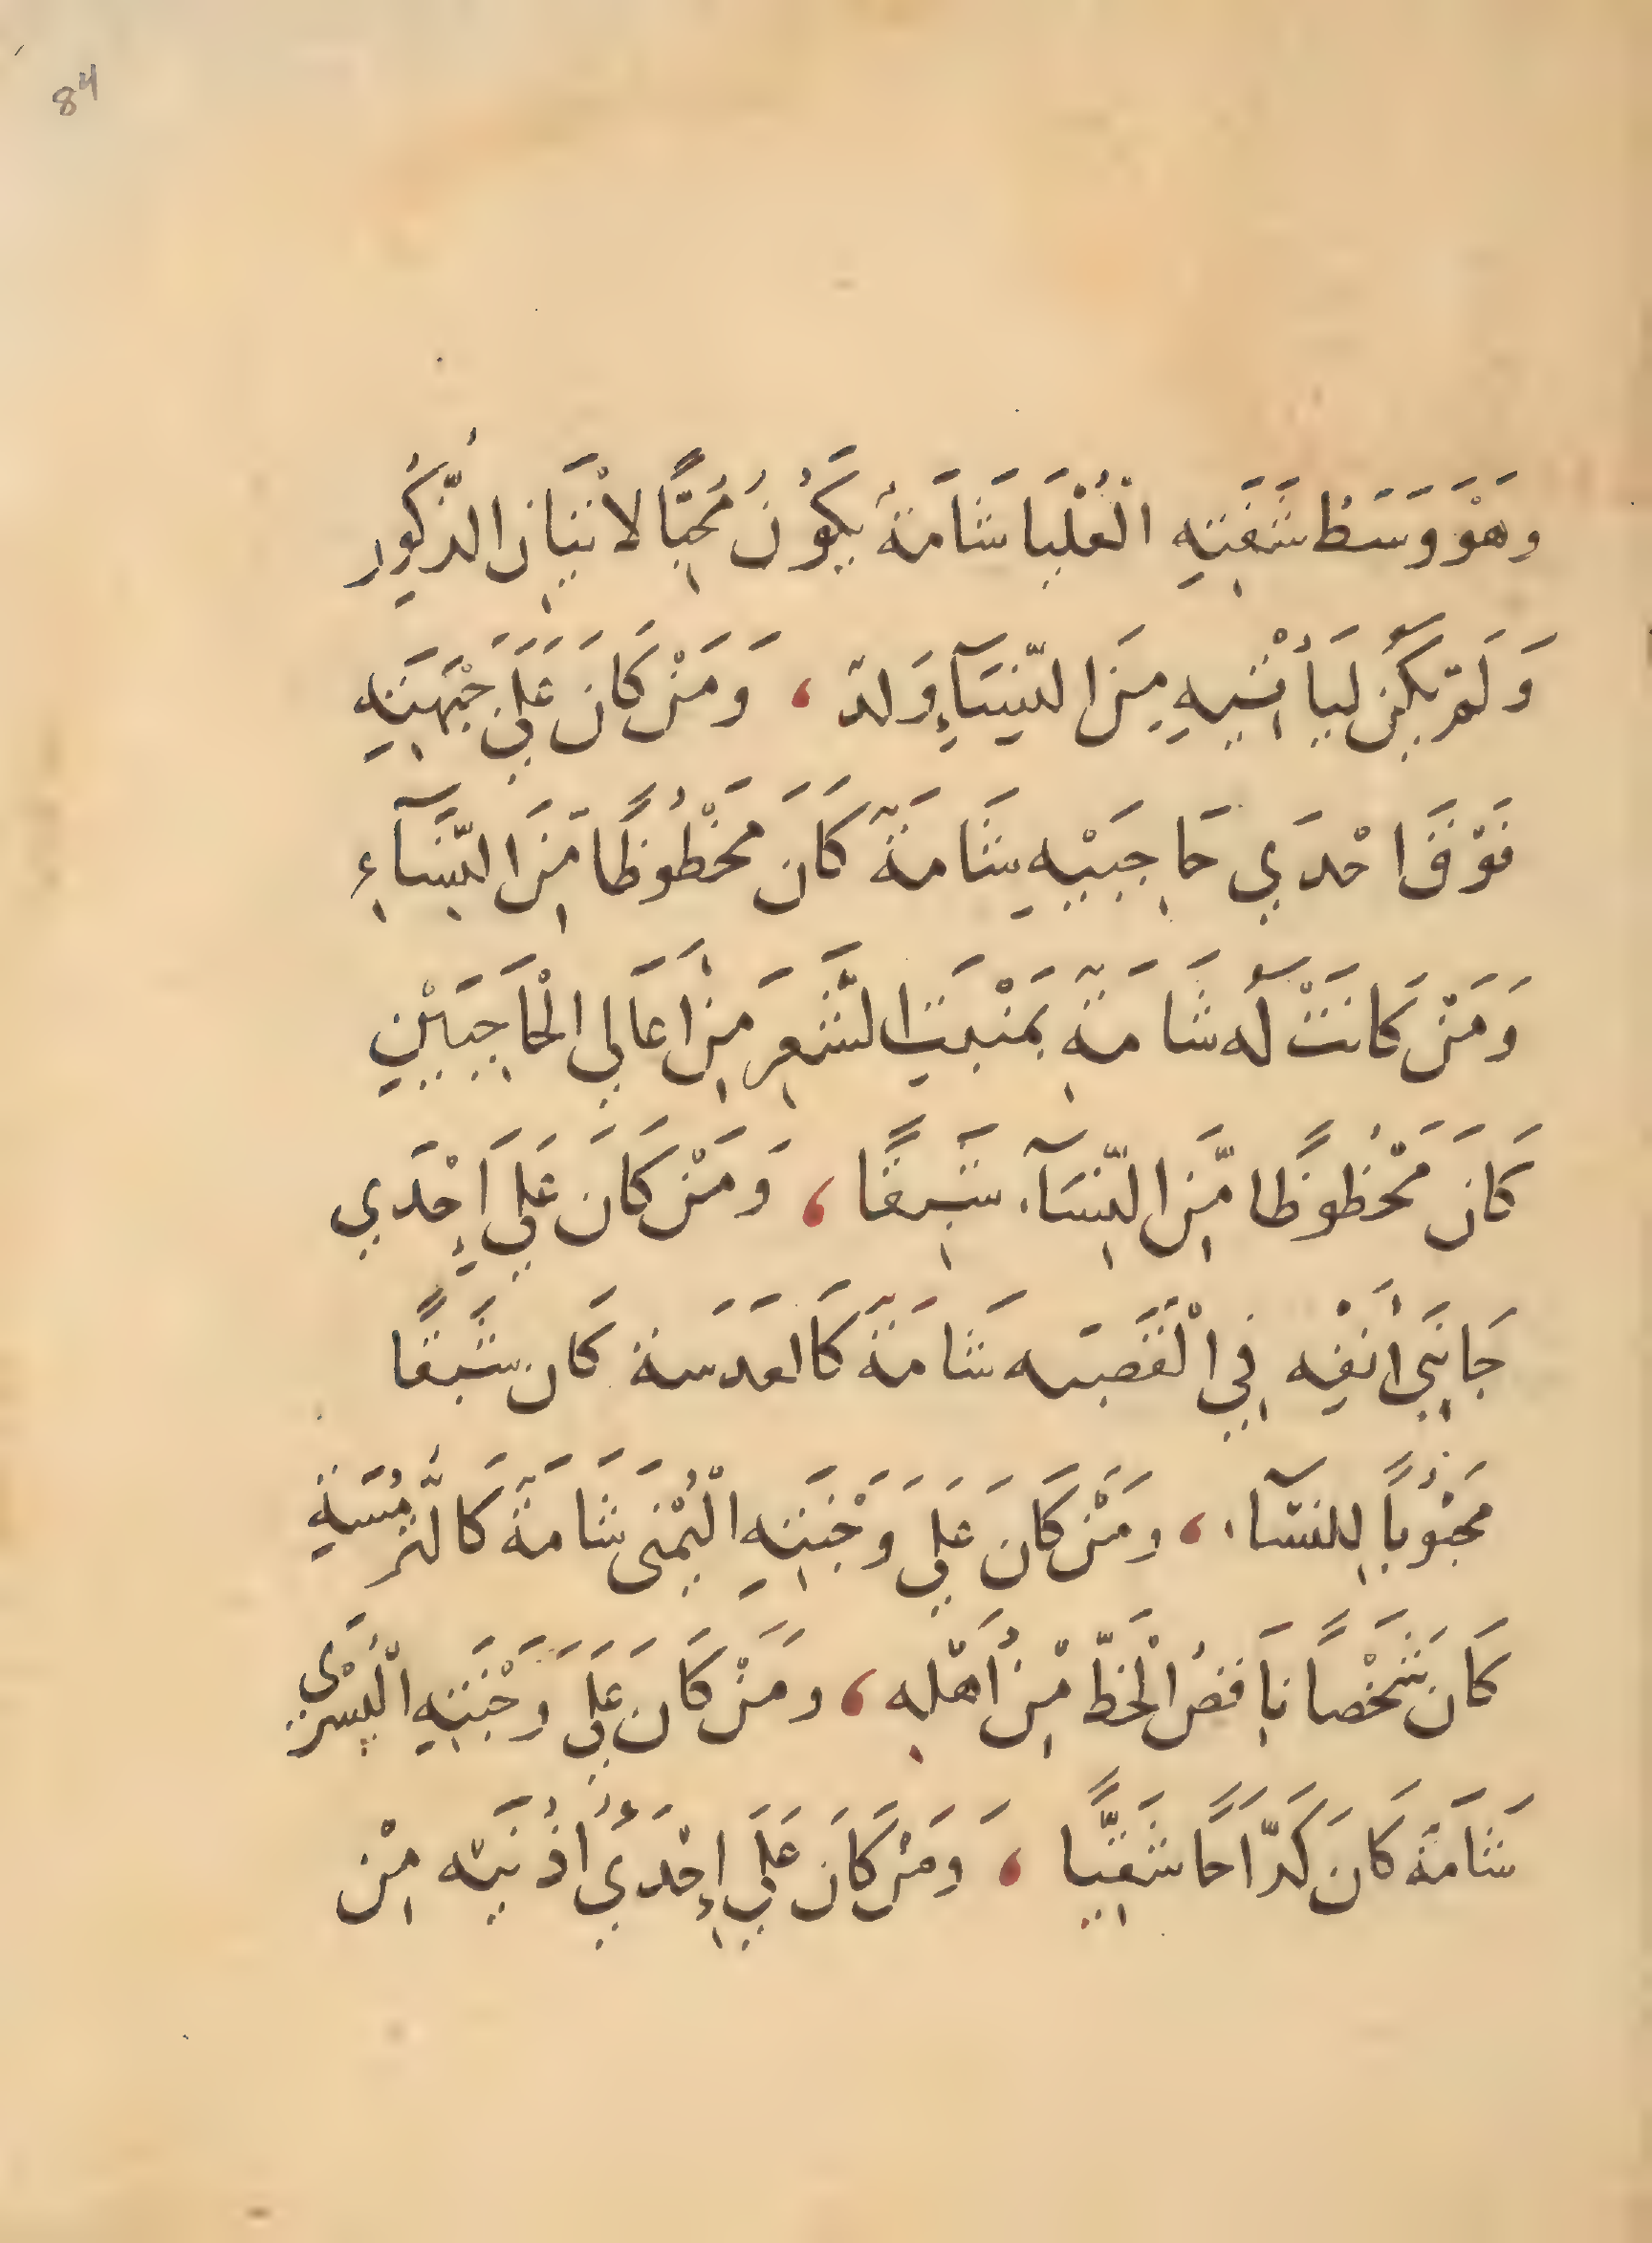 84
وَهْوَ وَسَطُ شَفَتِهِ الْعُلْيَا شَامَةُ يَكَوُنَ مُحِبًّا لاتيَان الذُّكُورِ
وَلَمّ يَكُن لِيَأتيهِ مِنَ النِّسَآءِ وَلدٌ، وَمَنْ كَانَ عَلَي جَبْهَتِهِ
فَوْقَ احْدَي حَاجِبَيْهِ شَامَةٌ كَانَ مَحْظُوظًا مِّنَ النِّسَآءِ
وَمَنْ كَانَتْ لَهُ شَامَةٌ بِمَنْبَتِ الشَّعرِ مِنْ أعَالي الْحَاجِبَيْنِ
كَانَ مَحْظُوظًا مِّنَ النِّسَآء شَبِقًا، وَمَنْ كَانَ عَلَي إحْدَي
جَانِبَي أَنْفِهِ فِي الْقَصَبَه شَامَةٌ كَالعدَسَة كَان شَبَقًا
مَحْبُوبًا لِلنسّآء، وَمَنْ كَانَ عَلَي وَجْنَتِهِ الْيُمْنَى شَامَةٌ كَالتُّرْمُسَةِ
كَانَ شَخْصًا نَاقِصُ الْحَظّ مِنْ أَهْلِهِ، وَمَنْ كَانَ عَلَي وَجْنَتِهِ الْيُسْرَى
شَامَةٌ كَانَ كَدَّاحًا شَقِيًّا، وَمَنْ كَانَ عَلَي إِحْدَي أُذُنَيْه مِنْ